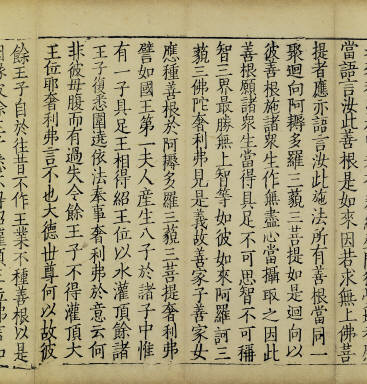 當語言汝此善根是如來因若求無上佛菩
提者應亦語言汝此施法所有善根當同一
聚迴向阿耨多羅三藐三菩提如是迴向以
彼善根施諸眾生作無盡心當攝取之因此
善根願諸眾生當得具足不可思智不可稱
智三界最勝無上智等如彼如來阿羅訶三
藐三佛陀奢利弗見是義故善家子善家女
應種善根於阿耨多羅三藐三菩提奢利弗
譬如國王第一夫人産生八子於諸子中惟
有一子具足王相得紹王位以水灌頂餘諸
王子復悉圍遶依法奉事奢利弗於意云何
非彼母腹而有過失令餘王子不得灌頂大
王位耶奢利弗言不也大德世尊何以故彼
餘王子自於往昔不作王業不種善根以是